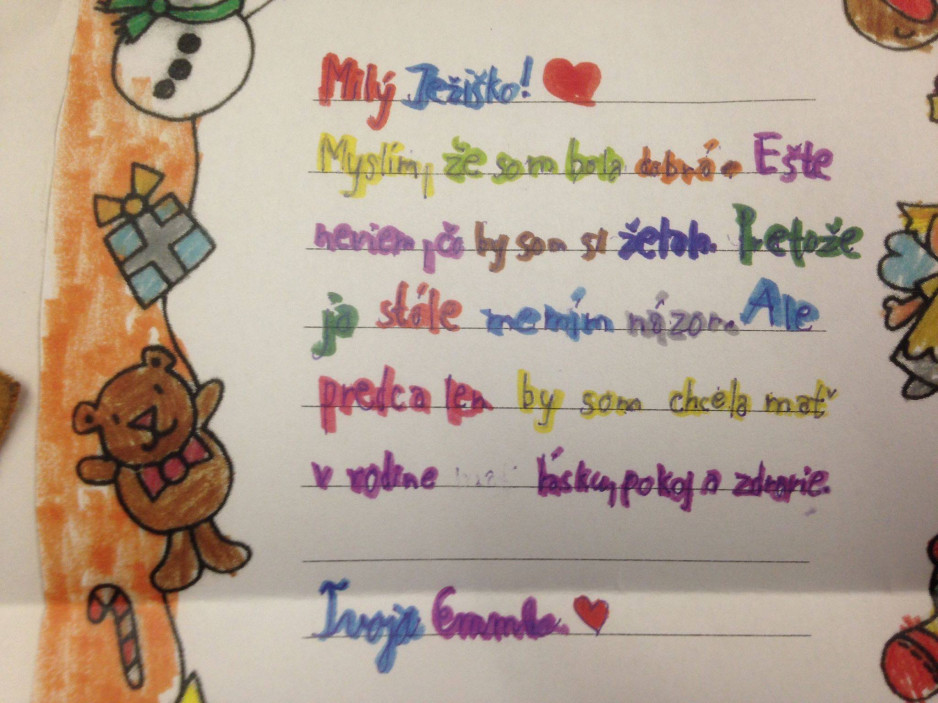 Milý Ježiško!
Myslím, že som bola dobrá. Ešte
neviem, čo by som si želala. Pretože
ja stále nemám názor. Ale
predca len by som chcela mať
v rodine mať lásku, pokoj a zdravie.
Tvoja Emmka.